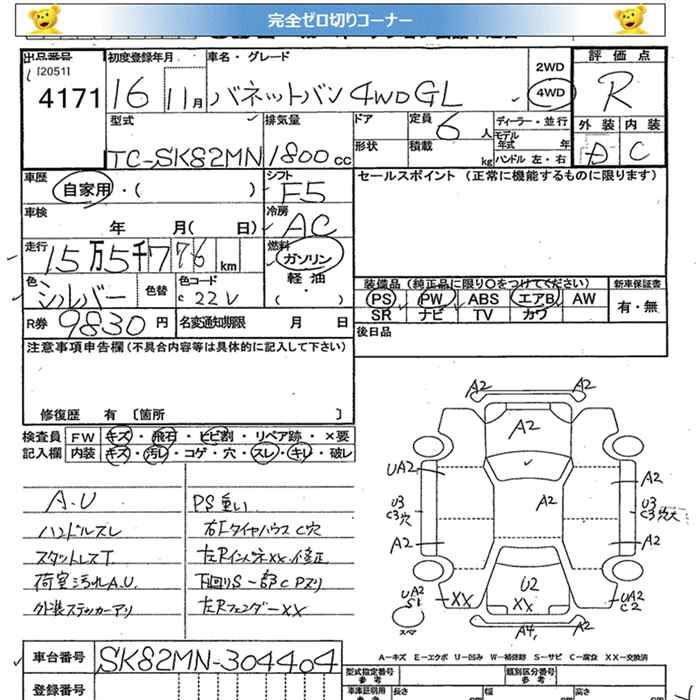 完全ゼロ切りコーナー
出品番号 初度登録年月 車名・グレード 評価点
(2051) 2WD
4171 16 11月 バネットバン4WDGL 4WD R
型式 排気量 ドア 定員 6 人 ディーラー・並行 外装 内装
モデル年式 年
TC-SK82MN 1800cc 形状 積載 kg ハンドル 左・右 D C
車歴 シフト セールスポイント(正常に機能するものに限ります)
自家用・( ) F5
車検 冷房
年 月( 日) AC
走行 燃料
15万5千776km ガソリン
色 色替 色コード 軽油
シルバー c 22V ・( )
装備品(純正品に限り○をつけてください) 新車保証書
PS PW ABS エアB AW 有・無
SR ナビ TV カワ
R券 9830円 名変通知期限 月 日 後日品
注意事項申告欄(不具合内容等は具体的に記入して下さい)
修復歴 有〔箇所 〕
検査員 FW キズ・飛石・ヒビ割・リペア跡・×要
記入欄 内装 キズ・汚レ・コゲ・穴・スレ・キレ・破レ
A.U PS重い
ハンドルスレ 右Fタイヤハウス C穴
スタットレスT. 左Rインパネ××.修正
荷室汚れA.U. 下回りS 一部CPズリ
外装ステッカーアリ 左Rフェンダー××
A2 A2
A2
UA2 A2
A2
U3 U3
C3穴 C3穴大
A2 A2
UA2 U2 UA2
S1 XX XX C2
スペア
A4 A2
A-キズ E-エクボ U-凹み W-補修跡 S-サビ C-腐食 XX-交換済
車台番号 SK82MN-304404
型式指定番号 類別区分番号
参考 参考
登録番号 車庫証明用 長さ 幅 高さ